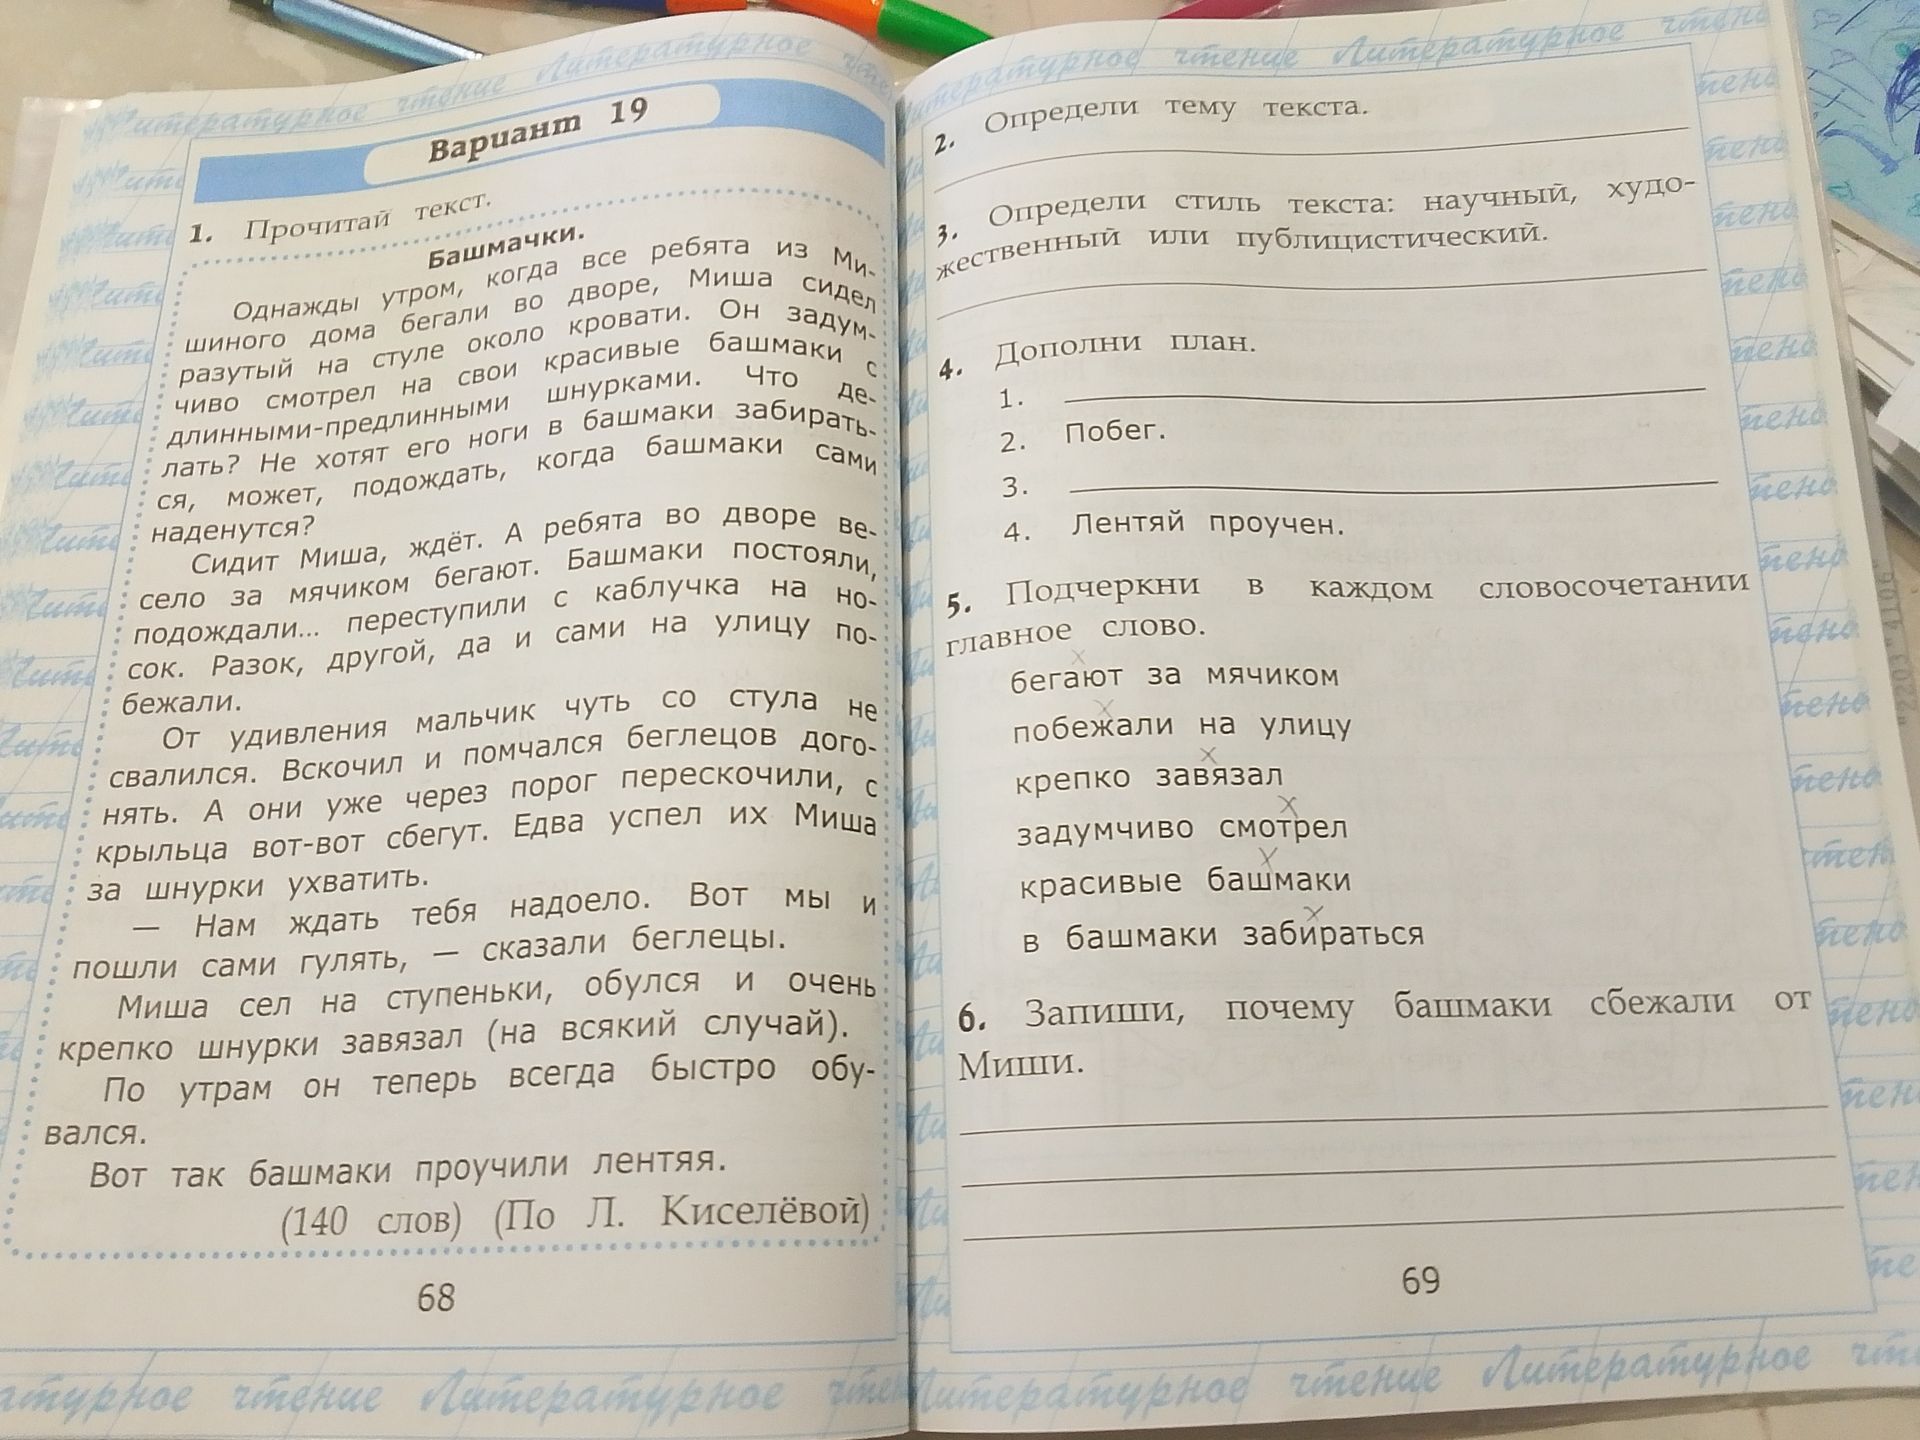 Литературное чтение Литературное чте
Вариант 19
1. Прочитай текст.
Башмачки.
Однажды утром, когда все ребята из Ми-
шиного дома бегали во дворе, Миша сидел
разутый на стуле около кровати. Он задум-
чиво смотрел на свои красивые башмаки с
длинными-предлинными шнурками. Что де-
лать? Не хотят его ноги в башмаки забирать-
ся, может, подождать, когда башмаки сами
наденутся?
Сидит Миша, ждёт. А ребята во дворе ве-
село за мячиком бегают. Башмаки постояли,
подождали... переступили с каблучка на но-
сок. Разок, другой, да и сами на улицу по-
бежали.
От удивления мальчик чуть со стула не
свалился. Вскочил и помчался беглецов дого-
нять. А они уже через порог перескочили, с
крыльца вот-вот сбегут. Едва успел их Миша
за шнурки ухватить.
— Нам ждать тебя надоело. Вот мы и
пошли сами гулять, — сказали беглецы.
Миша сел на ступеньки, обулся и очень
крепко шнурки завязал (на всякий случай).
По утрам он теперь всегда быстро обу-
вался.
Вот так башмаки проучили лентяя.
(140 слов) (По Л. Киселёвой)
68
атурное чтение Литературное чтен
Литературное чтение Литературное чтено
2. Определи тему текста.
3. Определи стиль текста: научный, худо-
жественный или публицистический.
4. Дополни план.
1.
2. Побег.
3.
4. Лентяй проучен.
5. Подчеркни в каждом словосочетании
главное слово.
бегают за мячиком
побежали на улицу
крепко завязал
задумчиво смотрел
красивые башмаки
в башмаки забираться
6. Запиши, почему башмаки сбежали от
Миши.
69
Литературное чтение Литературное чт